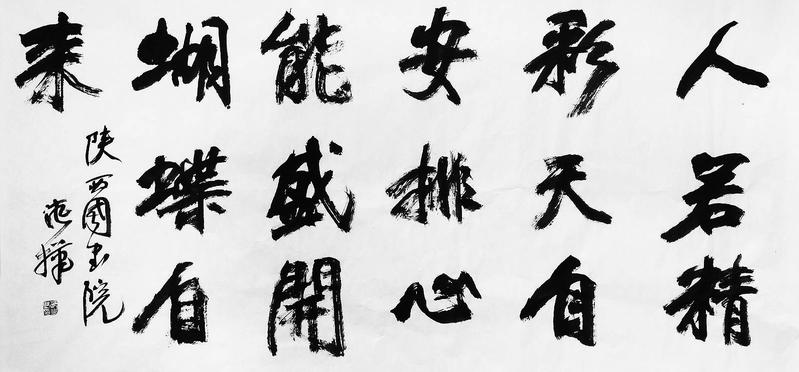 人若精
彩天自
安排心
能盛開
蝴蝶自
来
陕西國画院